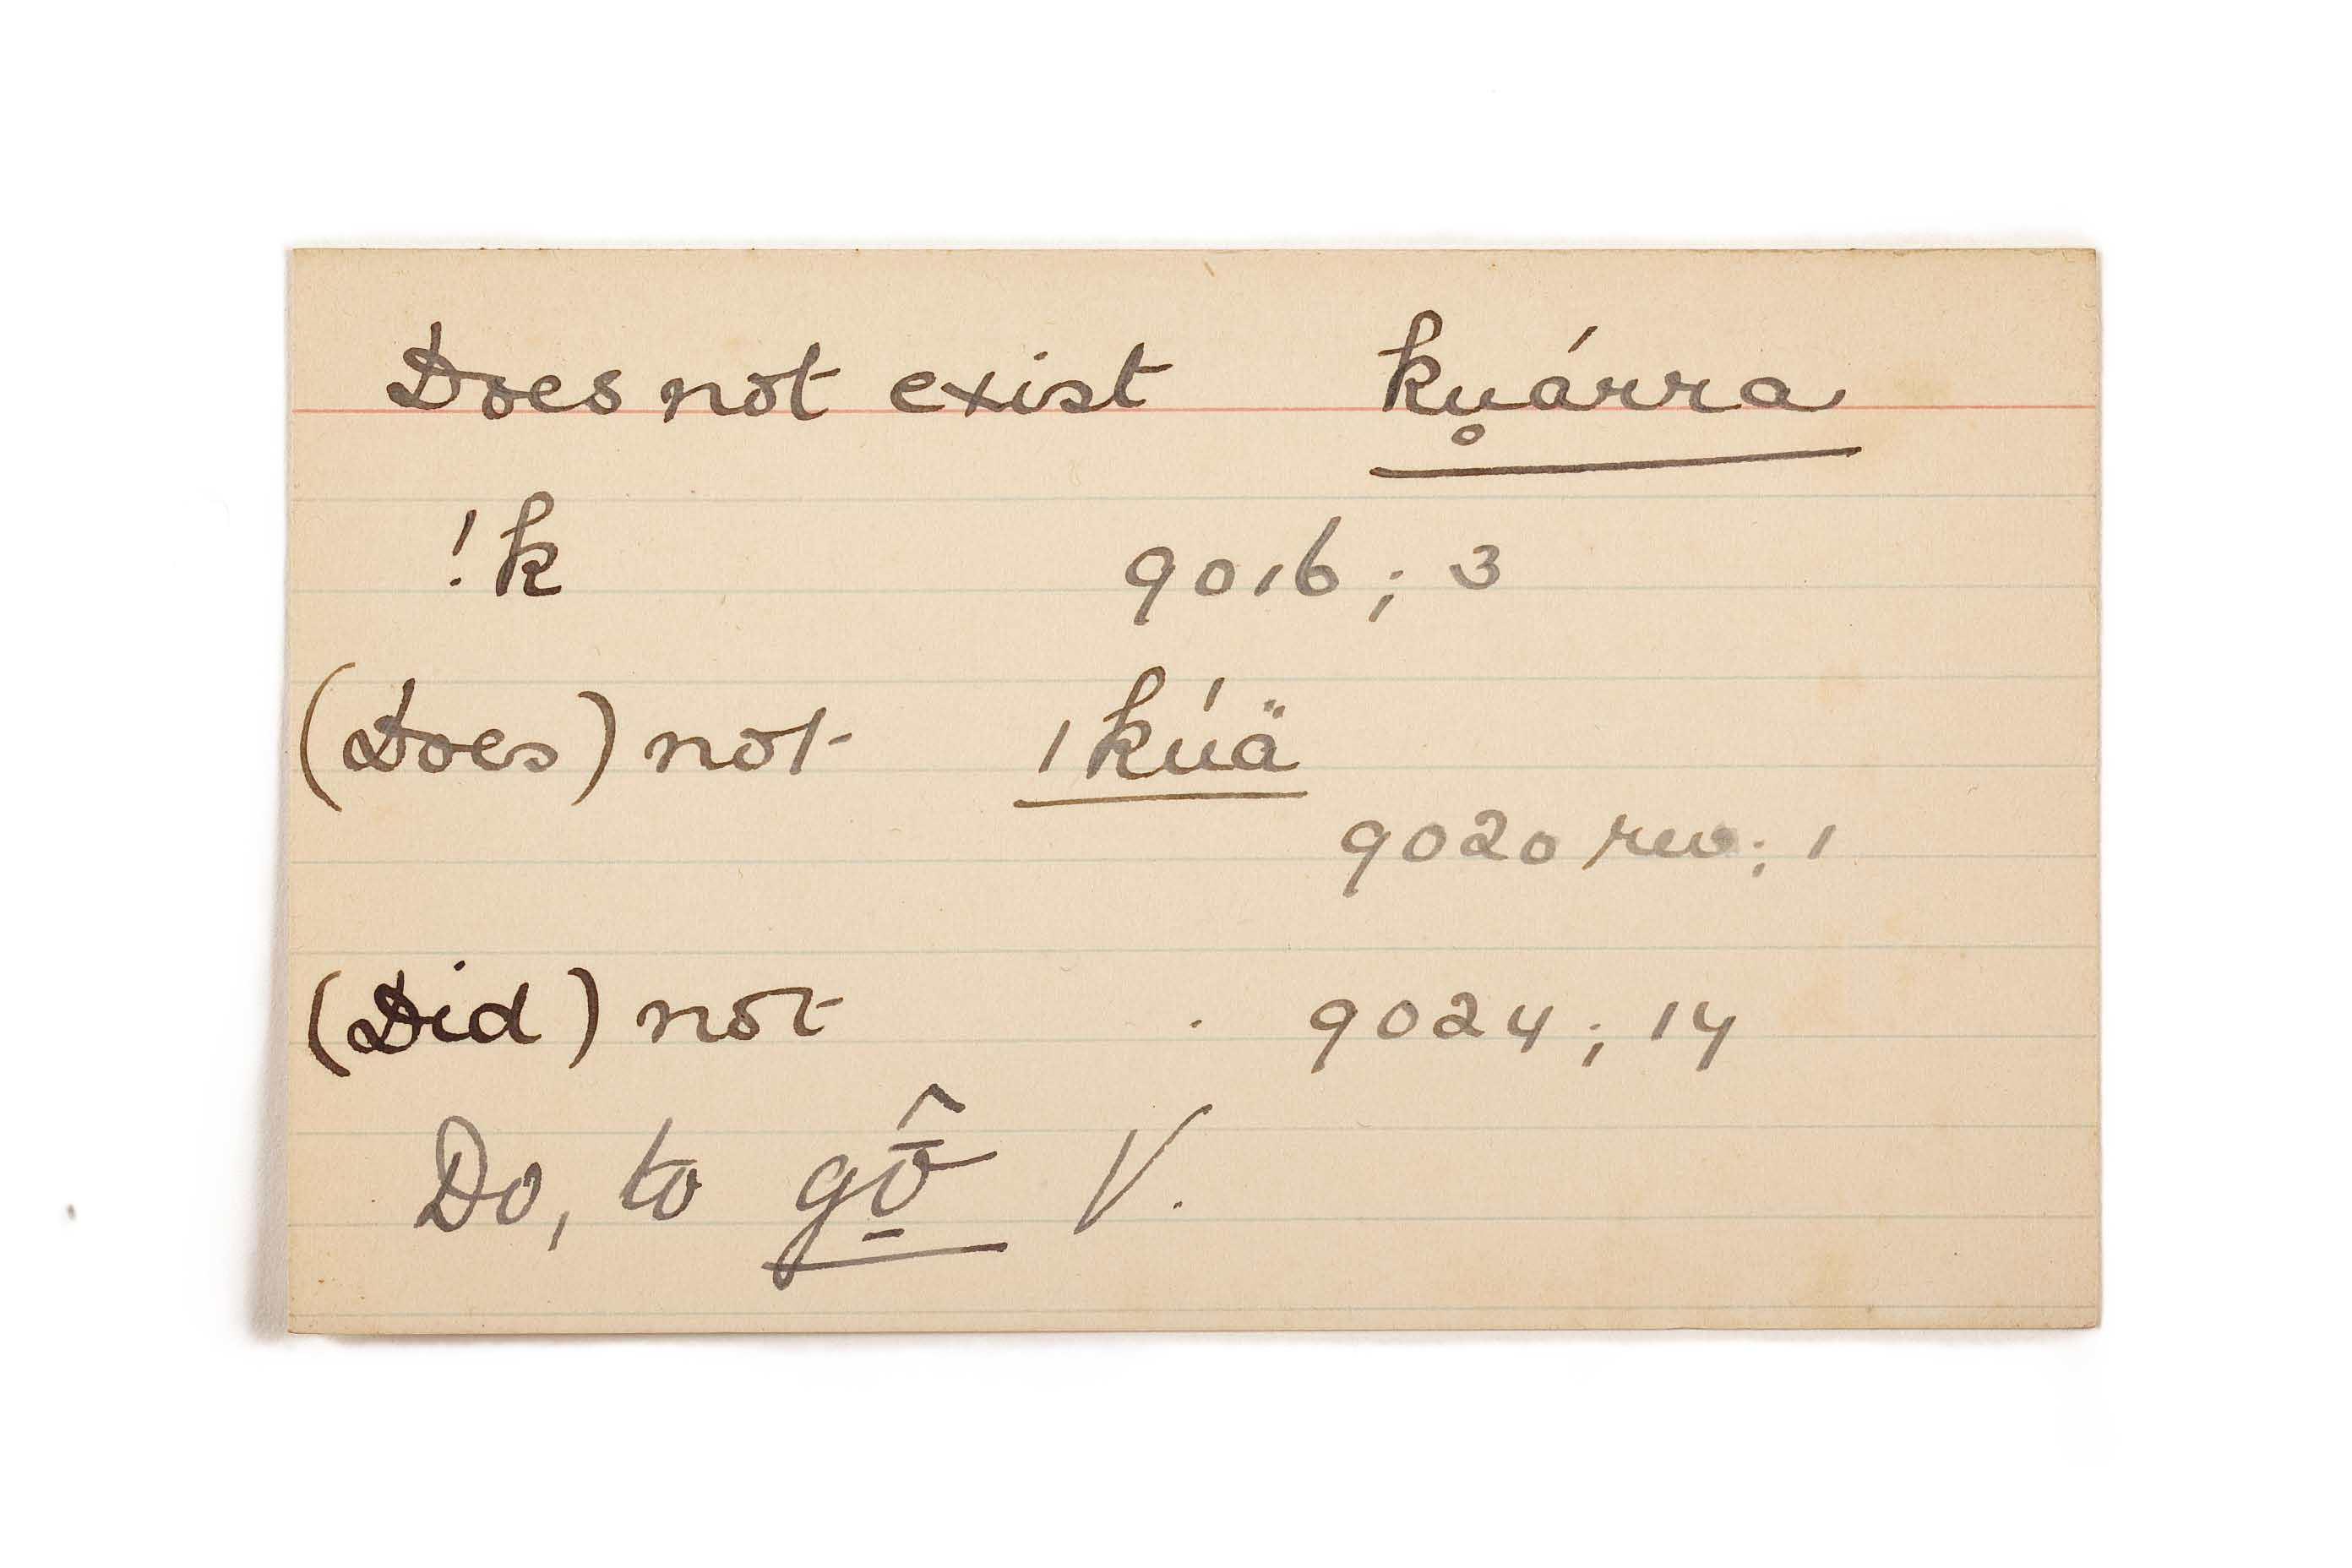 Does not exist ku̥árra
!k 9016 ; 3
(Does) not ǀkúä
9020 rev ; 1
(Did) not . 9024 ; 14
Do, to gō̱̂ V.